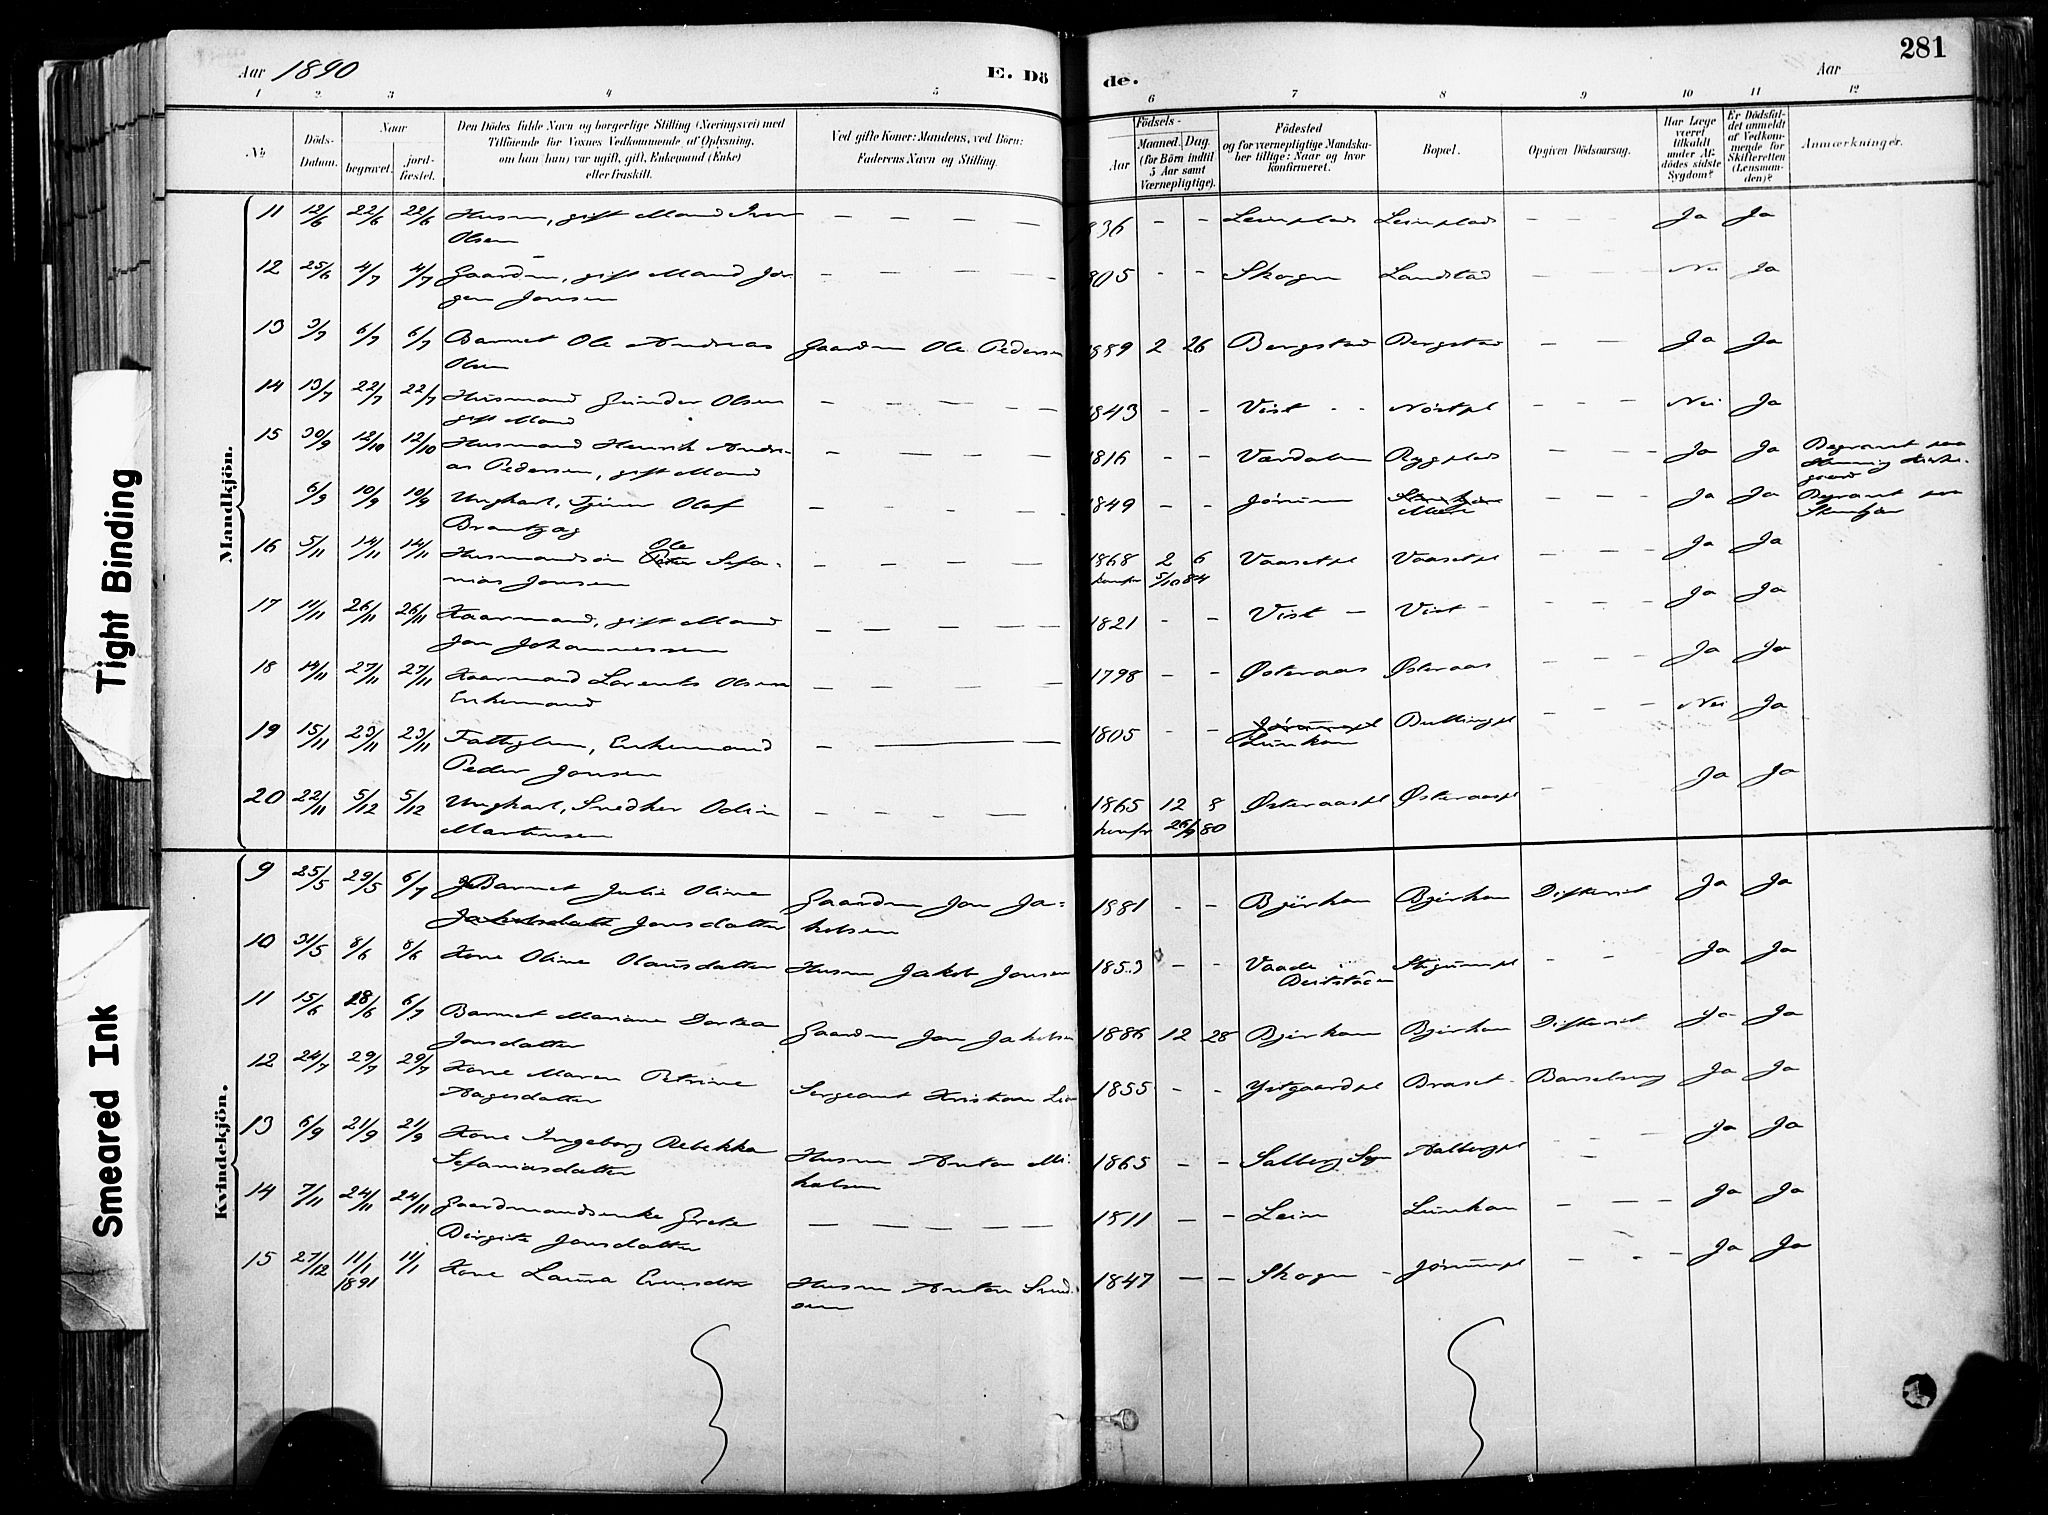 281
Aar 1890 E. Dö de. Aar
1 2 3 4 5 6 7 8 9 10 11 12
No.
Döds-Datum.
Naar
begravet.
jord-fæstet.
Den Dödes fulde Navn og borgerlige Stilling (Næringsvei) med
Tilföiende for Voxnes Vedkommende af Oplysning,
om han (hun) var ugift, gift, Enkemand (Enke)
eller fraskilt.
Ved gifte Koner: Mandens, ved Börn:
Faderens Navn og Stilling.
Födsels-
Aar
Maaned. Dag
(for Börn indtil
5 Aar samt
Værnepligtige).
Födested
og for værnepligtige Mandska-
ber tillige: Naar og hvor
konfirmeret.
Bopæl.
Opgiven Dödsaarsag.
Har Læge
været
tilkaldt
under Af-
dödes sidste
Sygdom?
Er Dödsfal-
det anmeldt
af Vedkom-
mende for
Skifteretten
(Lensman-
den)?
Anmærkninger.
Mandkjön.
11 12/6 22/6 22/6 Husm, gift Mand Iver — — — — 836 - - Leinplads Leinplads - - - Ja Ja
Olsen
12 25/6 4/7 4/7 Gaardm, gift Mand Jör — — — — 805 - - Skogn Landstad - - - Nei Ja
gen Jonsen
13 3/7 6/7 6/7 Barnet Ole Andreas Gaardm Ole Pedersen 1889 2 26 Bergstad Bergstad - - - Ja Ja
Olsen
14 13/7 22/7 22/7 Husmand Gunder Olsen — — — — 1843 - - Vist - - - - - Nei Ja
gift Mand
15 30/9 12/10 12/10 Husmand Henrik Andre- — — — — 1816 - - Værdalen Rygplads - - - Ja Ja Begravet paa
as Pedersen, gift Mand
6/9 10/9 10/9 Ungkarl, Tjener Olaf — — — — 1849 - - Jörum Mære - - - Ja Ja Begravet paa
Brantzæg
16 5/11 14/11 14/11 Husmandsön Ole Sefa- — — — — 1868 2 6 Vaasetpl Vaasetpl - - - Ja Ja
nias Jonsen konfr 5/10 84
17 11/11 26/11 26/11 Kaarmand, gift Mand — — — — 1821 - - Vist - Vist - - - - Ja Ja
Jon Johannessen
18 14/11 27/11 27/11 Kaarmand Lorents Olsen — — — — 1798 - - Østeraas Østeraas - - - Ja Ja
Enkemand
19 15/11 23/11 23/11 Fattiglem, Enkemand — — — 1805 - - Jörumpl - - - Nei Ja
Peder Jonsen Lunkan
20 22/11 5/12 5/12 Ungkarl, Snedker Odin — — — — 1865 12 8 Østeraaspl Østeraaspl - Ja Ja
Martinsen konfr 26/9 80
Kvindekjön.
9 25/5 29/5 6/7 Barnet Julie Oline Gaardm Jon Ja- 1881 - - Björkan Björkan Difterit Ja Ja
Jakobsdatter Jonsdatter kobsen
10 31/5 8/6 8/6 Kone Oline Olausdatter Husm Jakob Jonsen 1853 - - Vaade Stigumpl - - Ja Ja
Beitstaden
11 15/6 28/6 6/7 Barnet Mariane Dortea Gaardm Jon Jakobsen 1886 12 28 Björkan Björkan Difterit Ja Ja
Jonsdatter
12 24/7 29/7 29/7 Kone Maren Petrine Sergeant Kristian 1855 - - Ystgaardpl Braset Barselseng Ja Ja
Aagesdatter
13 6/9 21/9 21/9 Kone Ingeborg Rebekka Husm Anton Mi- 1865 - - Salberg Sogn Aalbergpl - - Ja Ja
Sefaniasdatter kalsen
14 7/11 24/11 24/11 Gaardmandsenke Grete — — — — 1811 - - Lein Lunkan - - - Ja Ja
Birgitte Jonsdatter
15 27/12 11/1 11/1 Kone Laura Husm Anton 1847 - - Skogn - Jörumpl - - - Ja Ja
1891
Tight Binding
Smeared Ink